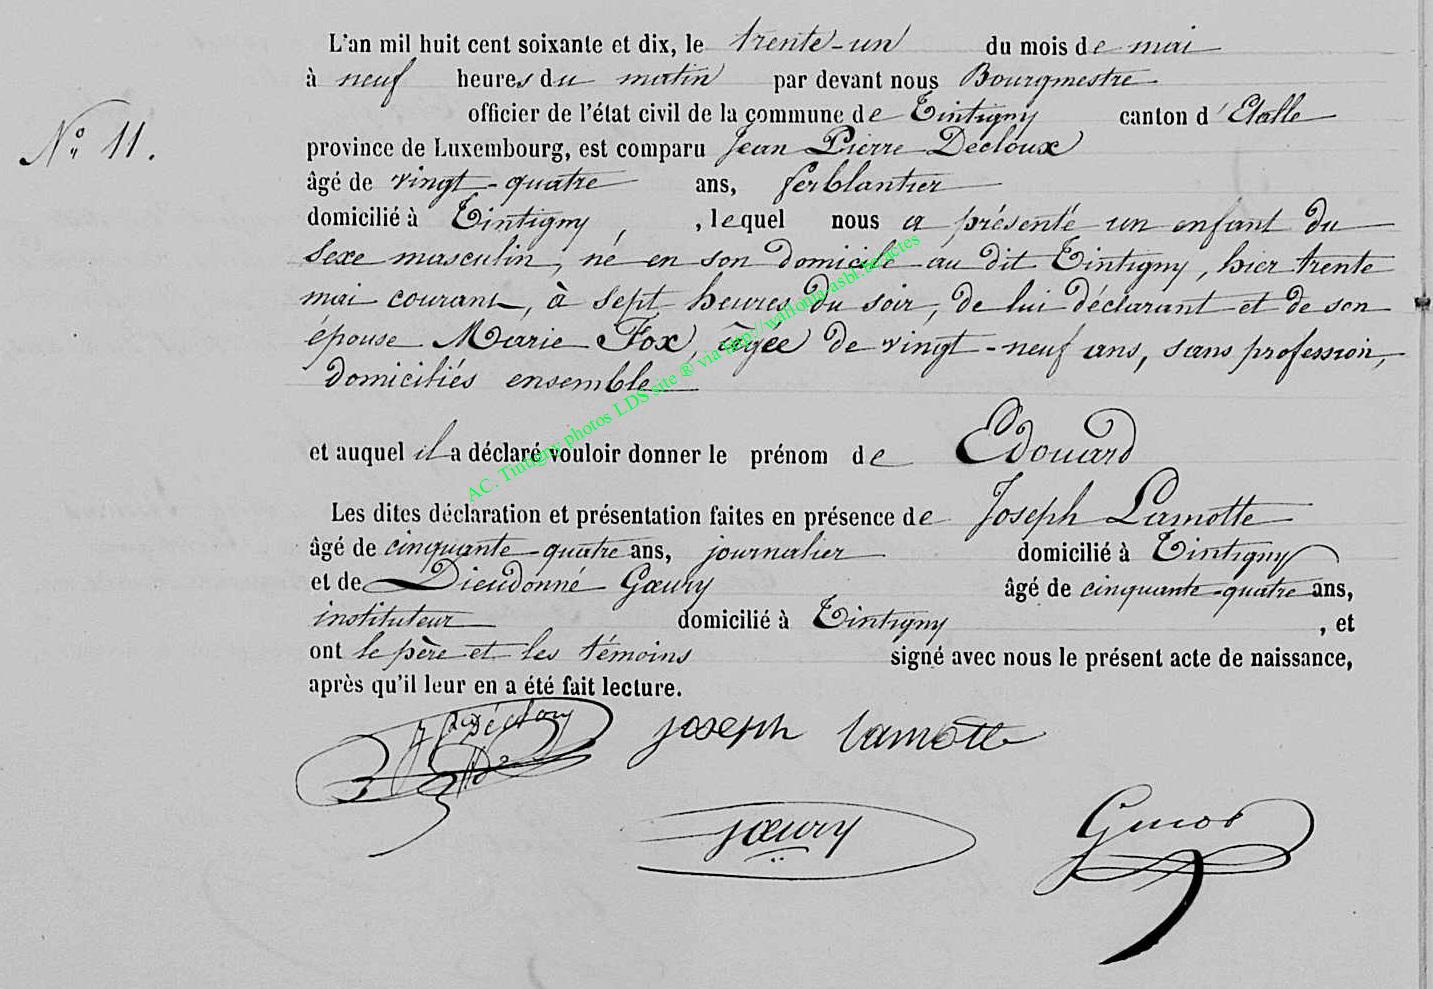 L'an mil huit cent soixante et dix, le trente-un du mois de mai
à neuf heures du matin par devant nous Bourgmestre
officier de l'état civil de la commune de Tintigny canton d'Etalle
N° 11.
province de Luxembourg, est comparu Jean Pierre Decloux
âgé de vingt-quatre ans, ferblantier
domicilié à Tintigny, , lequel nous a présenté un enfant du
sexe masculin, né en son domicile au dit Tintigny, hier trente
mai courant, à sept heures du soir, de lui déclarant et de son
épouse Marie Fox, âgée de vingt-neuf ans, sans profession,
domiciliés ensemble
AC. Tintigny photos LDS site ® via http://wallonia-asbl.be/actes
et auquel il a déclaré vouloir donner le prénom de Edouard
Les dites déclaration et présentation faites en présence de Joseph Lamotte
âgé de cinquante-quatre ans, journalier domicilié à Tintigny
et de Dieudonné Gœury âgé de cinquante-quatre ans,
instituteur domicilié à Tintigny , et
ont le père et les témoins signé avec nous le présent acte de naissance,
après qu'il leur en a été fait lecture.
joseph lamotte
gœury